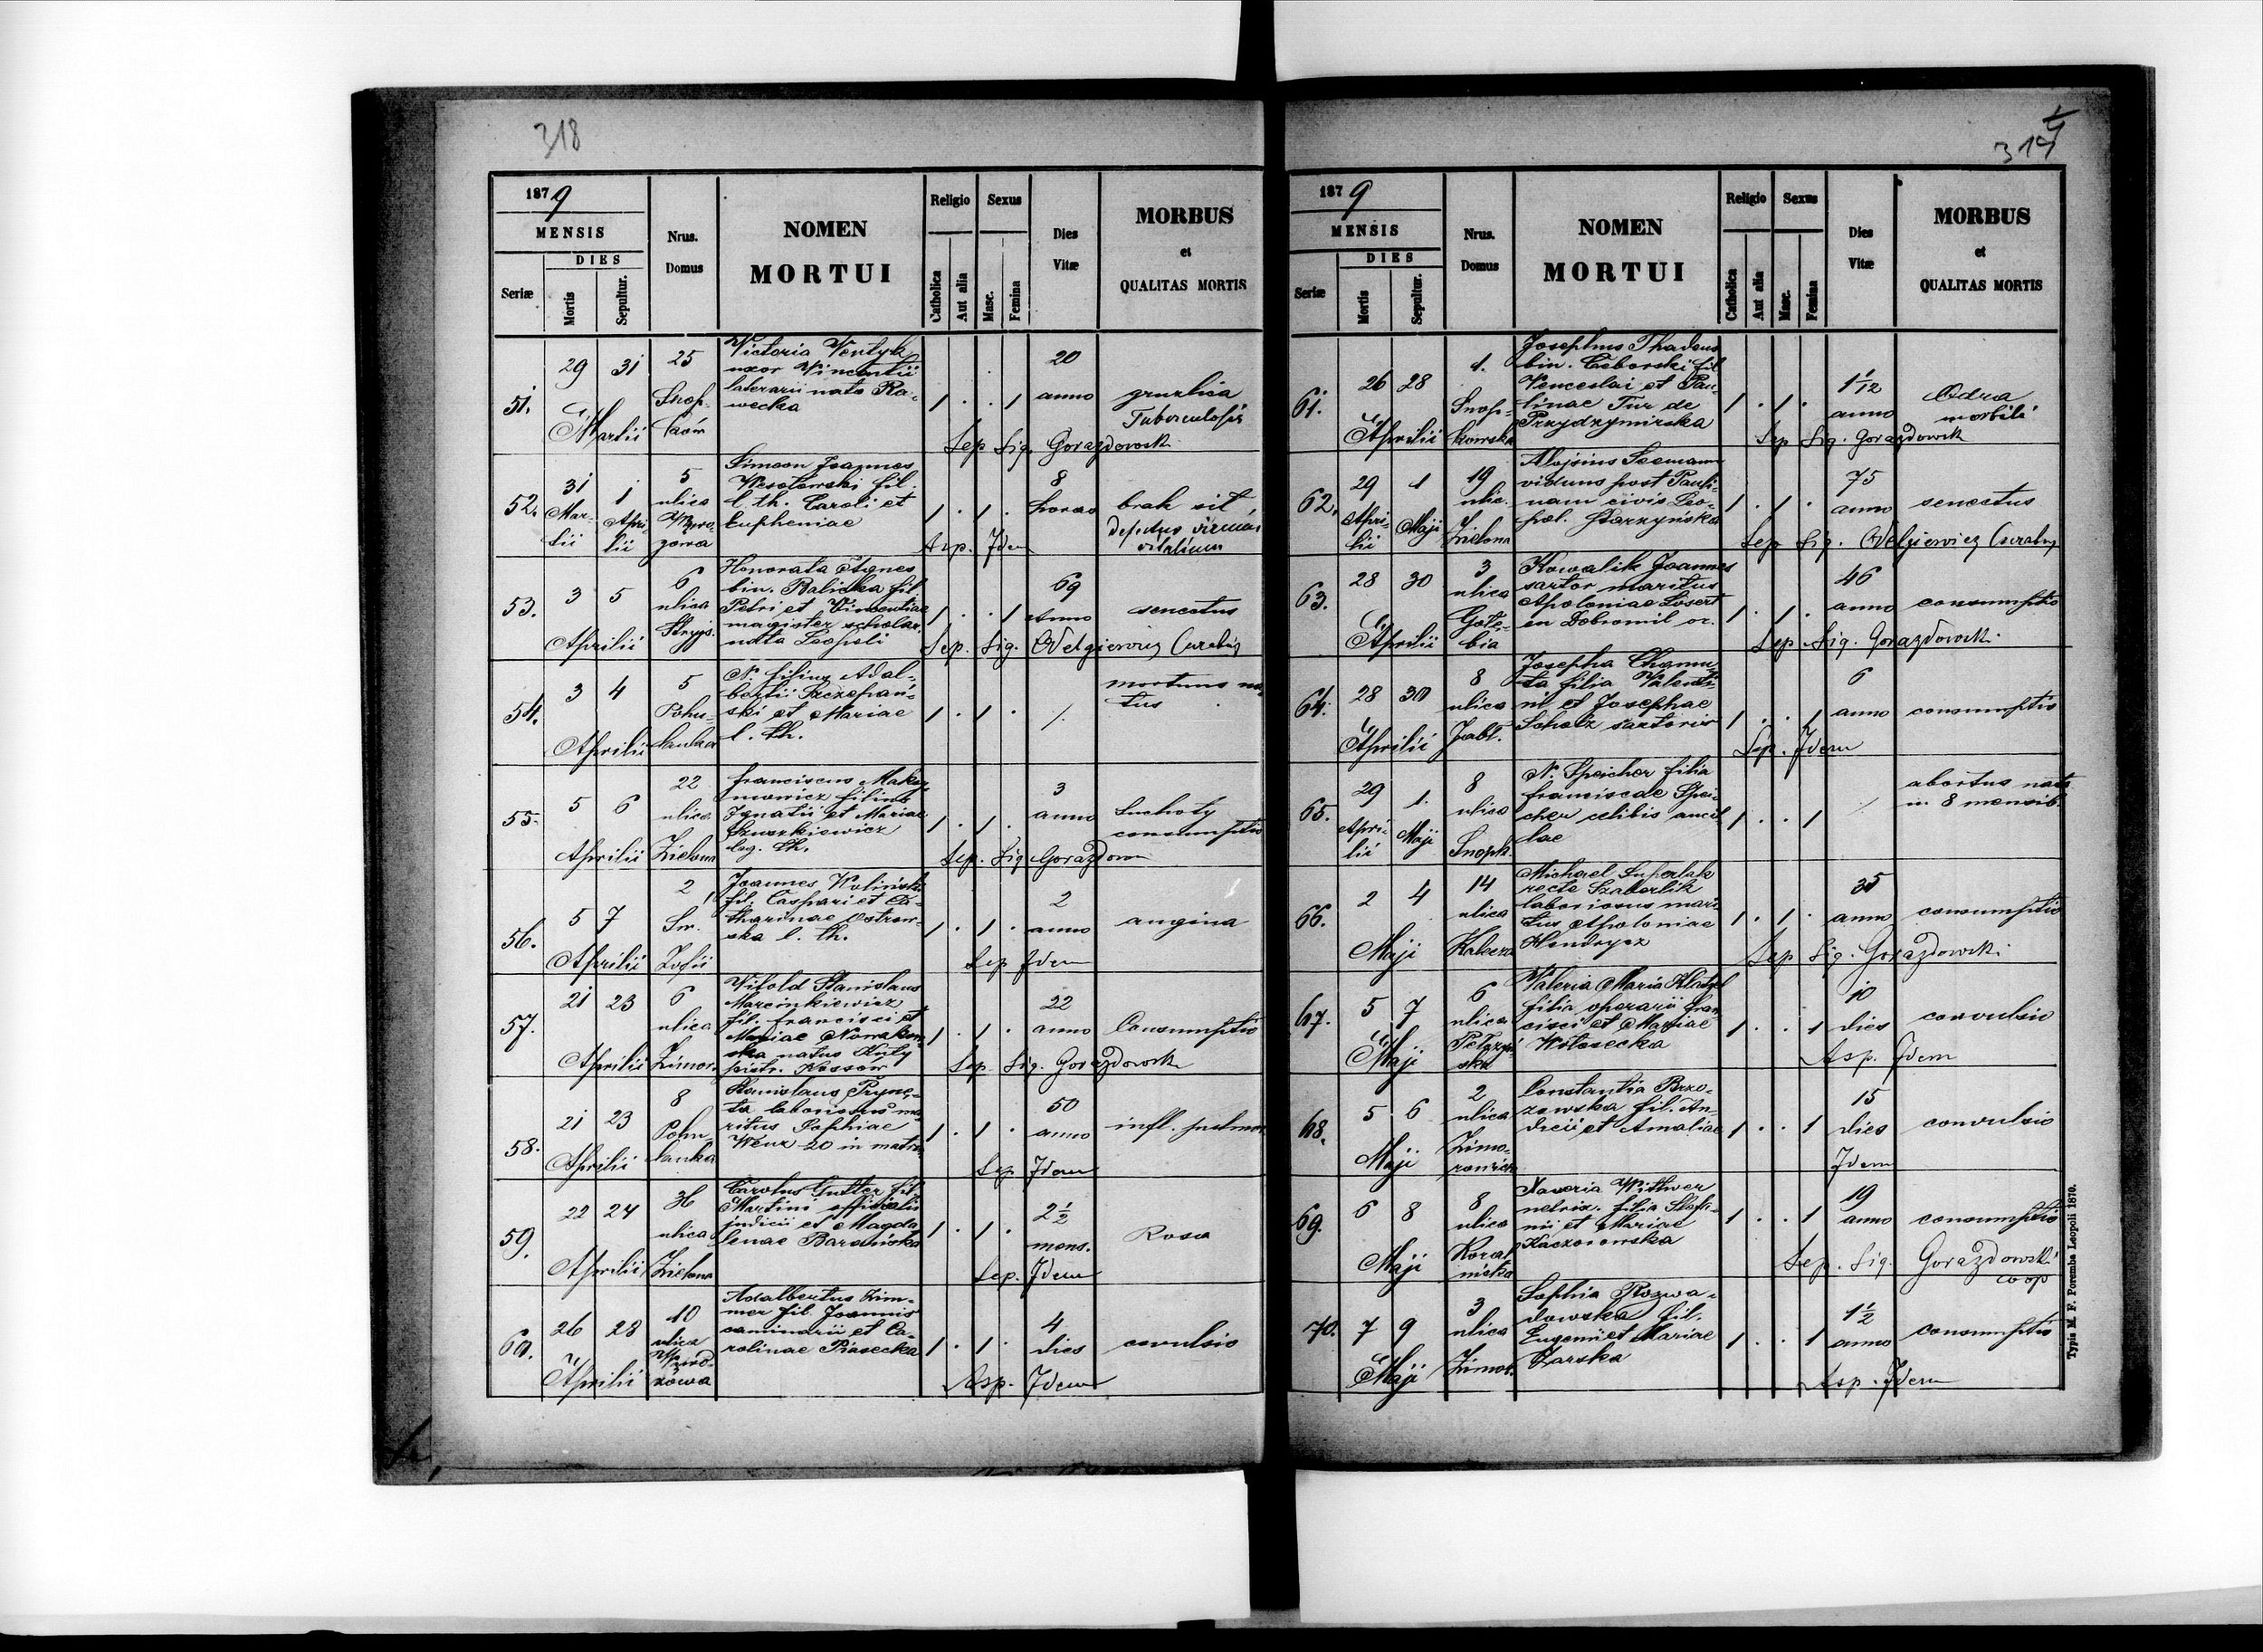 318
1879
MENSIS
DIES
Seriæ
Mortis
Sepultur.
Nrus.
Domus
NOMEN
MORTUI
Religio
Catholica
Aut alia
Sexus
Masc.
Femina
Dies
Vitæ
MORBUS
et
QUALITAS MORTIS
51.
29 31
Martii
25
Snop-
ków
Victoria Wentyk
uxor Vincentii
laterarii nata Ra-
wecka
1 . . 1
20
anno
gruzlica
Tuberculosis
Sep Sig. Gorazdowsk
52.
31 1
Mar- Apri-
tii lii
5
ulica
Simeon Joannes
Wesołowski fil.
l. th. Caroli et
Eupheniae
1 . 1 .
8
horas
brak sił
defectus virium
vitalium
Asp. Idem
53.
3 5
Aprilii
6
ulica
Stryjs.
Honorata Agnes
bin. Balicka fil.
Petri et Vincentiae
magister scholar.
nata Leopoli
1 . . 1
69
Anno
senectus
Sep. Sig. Odelgiewicz Curatus
54.
3 4
Aprilii
5
Pohu-
lanka
N. filius Adal-
bertii Szczepań-
ski et Mariae
l. th.
1 . 1 .
mortuus na-
tus
55.
5 6
Aprilii
22
ulica
Zielona
Franciscus Maksy-
mowicz filius
Ignatii et Mariae
Sznurkiewicz
leg. th.
1 . 1 .
3
anno
Suchoty
consumptio
Sep. Sig Gorazdow
56.
5 7
Aprilii
2
Sw.
Zofii
Joannes Woliński
fil. Caspari et Ca-
tharinae Ostrow-
ska l. th.
1 . 1 .
2
anno
angina
Sep Idem
57.
21 23
Aprilii
6
ulica
Zimor.
Witold Stanislaus
Marcinkiewicz
fil. Francisci et
Mariae Nowakow-
ska natus Kuty
distr. Kossow
1 . 1 .
22
anno
Consumptio
Sep. Sig. Gorazdowsk
58.
21 23
Aprilii
8
Pohu-
lanka
Stanislaus Prymę-
ta laboriosus ma-
ritus Sophiae
Wenz 20 in matr.
1 . 1 .
50
anno
infl. pulmon
Sep Idem
59.
22 24
Aprilii
36
ulica
Zielona
Carolus Gutter fil.
Martini officialis
judicii et Magda-
lenae Barańska
1 . 1 .
2 1/2
mens.
Rosa
Sep. Idem
60.
26 28
Aprilii
10
ulica
Adalbertus Zim-
mer fil. Joannis
caminarii et Ca-
rolinae Piasecka
1 . 1 .
4
dies
covulsio
Asp. Idem
319
1879
MENSIS
DIES
Seriæ
Mortis
Sepultur.
Nrus.
Domus
NOMEN
MORTUI
Religio
Catholica
Aut alia
Sexus
Masc.
Femina
Dies
Vitæ
MORBUS
et
QUALITAS MORTIS
61.
26 28
Aprilii
1.
Snop-
kowska
Josephus Thadeus
bin. Ceborski fil
Venceslai et Pau-
linae Tur de
Przydrzymirska
1 . 1 .
1 1/12
anno
Odra
morbili
Sep Sig. Gorazdowsk
62.
29 1
Apri- Maji
lii
19
ulic.
Zielona
Alojsius Seemann
viduus post Pauli-
nam civis Leo-
pol. Starzyńska
1 . 1 .
75
anno
senectus
Sep Sig. Odelgiewicz Curatus
63.
28 30
Aprilii
3
ulica
Gołę-
bia
Kowalik Joannes
sartor maritus
Apoloniae Losert
en Dobromil or.
1 . 1 .
46
anno
consumptio
Sep Sig. Gorazdowsk.
64.
28 30
Aprilii
8
ulica
Jabł.
Josepha Chamu-
ta filia Valenti-
ni et Josephae
Scholz sartoris
1 . . 1
6
anno
consumptio
Sep. Idem
65.
29 1.
Apri- Maji
lii
8
ulica
Snopk.
N. Speicher filia
Franciscae Spei-
cher celibis ancil-
lae
1 . . 1
abortus nata
in 8 mensib.
66.
2 4
Maji
14
ulica
Kalecza
Michael Superlak
recte Szaberlik
laboriosus mari-
tus Apoloniae
Hendrysz
1 . 1 .
35
anno
consumptio
Sep Sig. Gorazdowsk.
67.
5 7
Maji
6
ulica
Pełczyń-
ska
Valeria Maria Klatzel
filia operarii Fran-
cisci et Mariae
Witosecka
1 . . 1
10
dies
convulsio
Asp. Idem
68.
5 6
Maji
2
ulica
Zimo-
rowicza
Constantia Brzo-
zowska fil. An-
dreii et Amaliae
1 . . 1
15
dies
convulsio
Idem
69.
6 8
Maji
8
ulica
Koral-
nicka
Xaveria Wittwer
netrix. filia Stefa-
nii et Mariae
Kaczorowska
1 . . 1
19
anno
consumptio
Sep. Sig. Gorazdowski
coop
70.
7 9
Maji
3
ulica
Zimor.
Sophia Rozwa-
dowska fil.
Eugenii et Mariae
Żarska
1 . . 1
1 1/2
anno
consumptio
Asp. Idem
Typis M. F. Poremba Leopoli 1870.